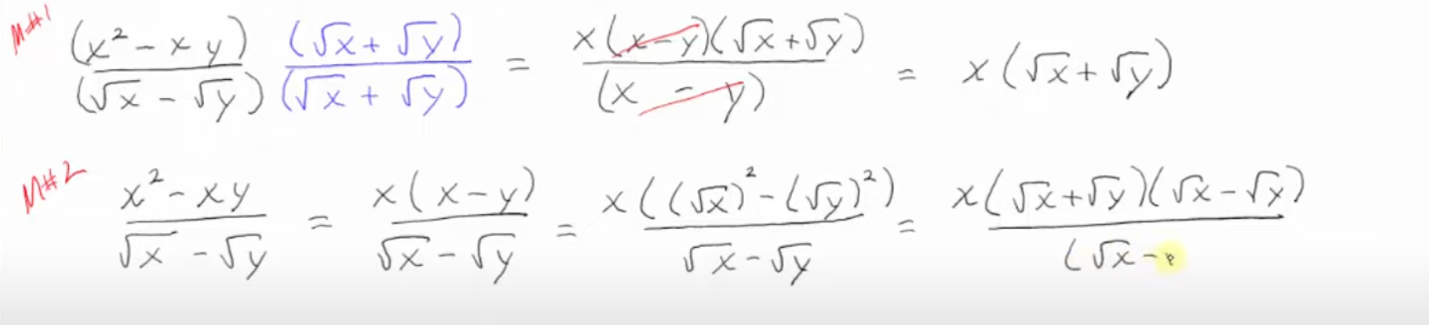 M#1 (x² - xy)/(√x - √y) (√x + √y)/(√x + √y) = x(x-y)(√x + √y)/(x - y) = x(√x + √y)
M#2 x² - xy/√x - √y = x(x-y)/√x - √y = x((√x)² - (√y)²)/√x - √y = x(√x + √y)(√x - √y)/(√x -